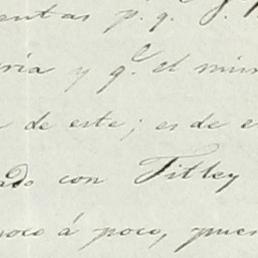 entas p. q.
ria y q.e el mism
de este; es de e
ado con Titley
poco á poco, pues